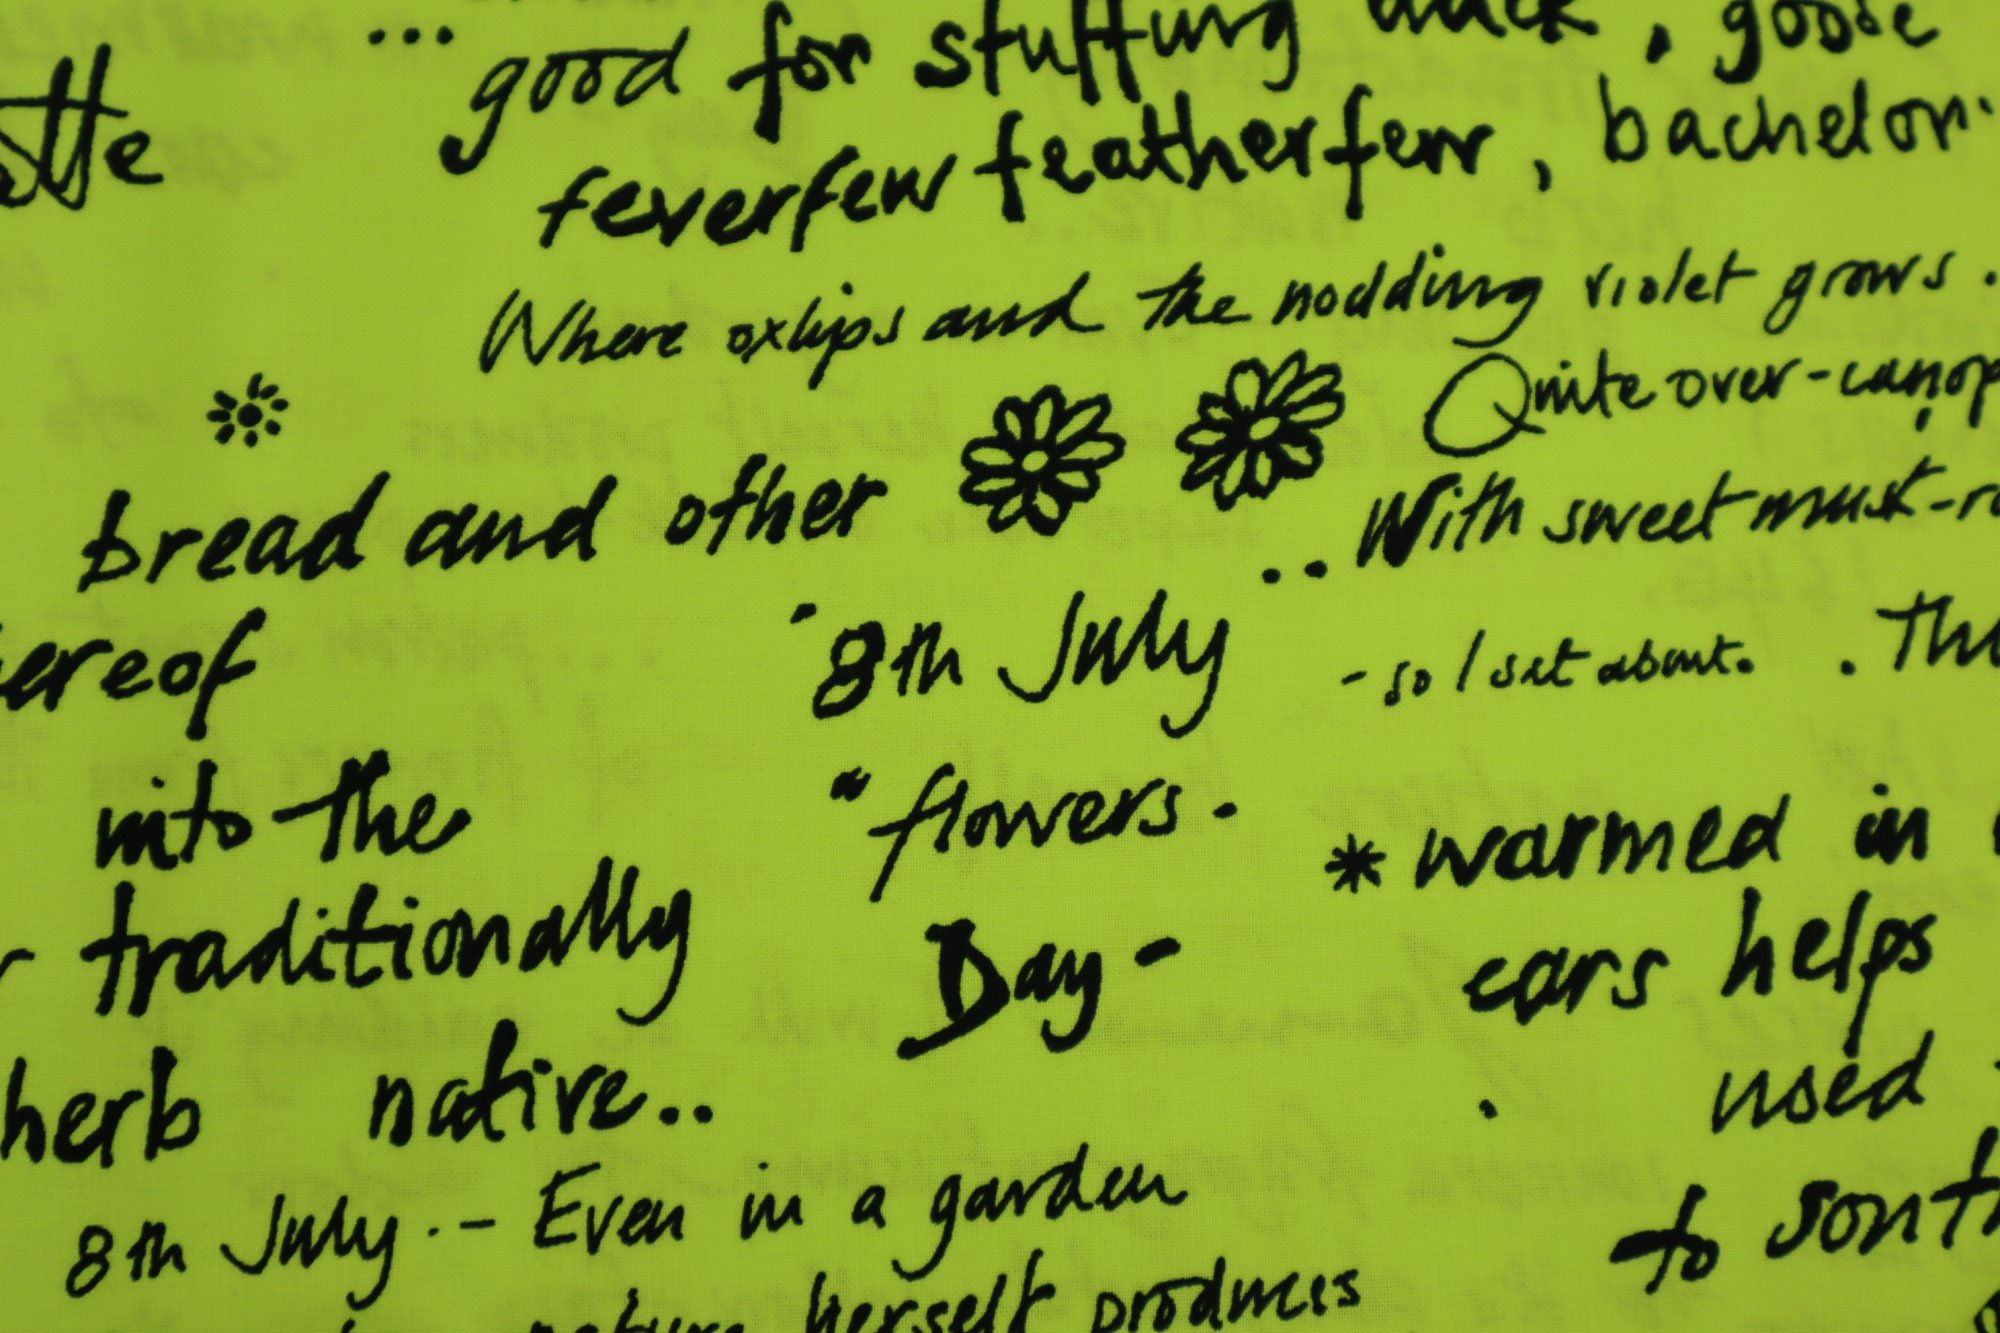 ... good for stuffing duck, goose
feverfew featherfew, bachelor
Where oxlips and the nodding violet grows.
Quite over-canop
bread and other
.. With sweet musk-ro
8th July
- so I set about. . Thi
ereof
into the
" flowers.
* warmed in
traditionally
Day -
ears helps
herb native..
used
8th July. - Even in a garden
to
nature herself produces